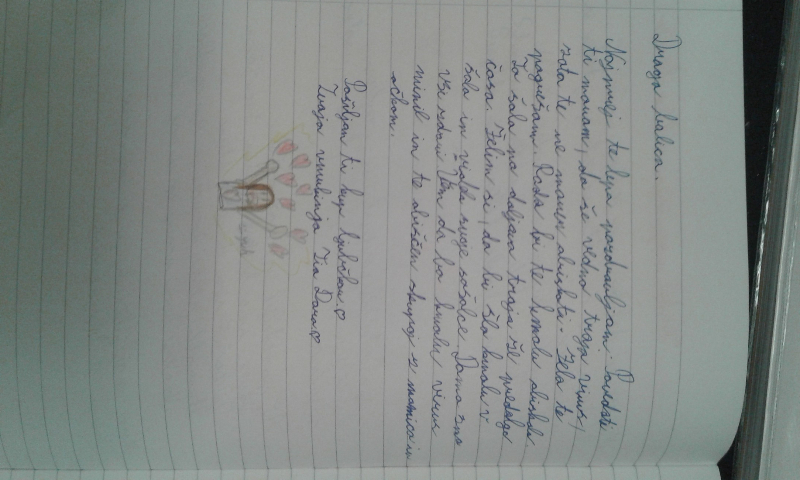 Draga babica.
Najprej te lepo pozdravljam. Povedati
ti moram, da še vedno traja virus,
zato te ne morem obiskati. Zelo te
pogrešam. Rada bi te kmalu obiskala.
Ta šola na daljavo traja že predolgo
časa. Želim si, da bi šla kmalu v
šolo in videla svoje sošolce. Doma smo
vsi zdravi. Upam da bo kmalu virus
minil in te obiščem skupaj z mamico in
očkom.
Pošiljam ti kup ljubčkov. ♡
Tvoja vnukinja Zia Dara♡